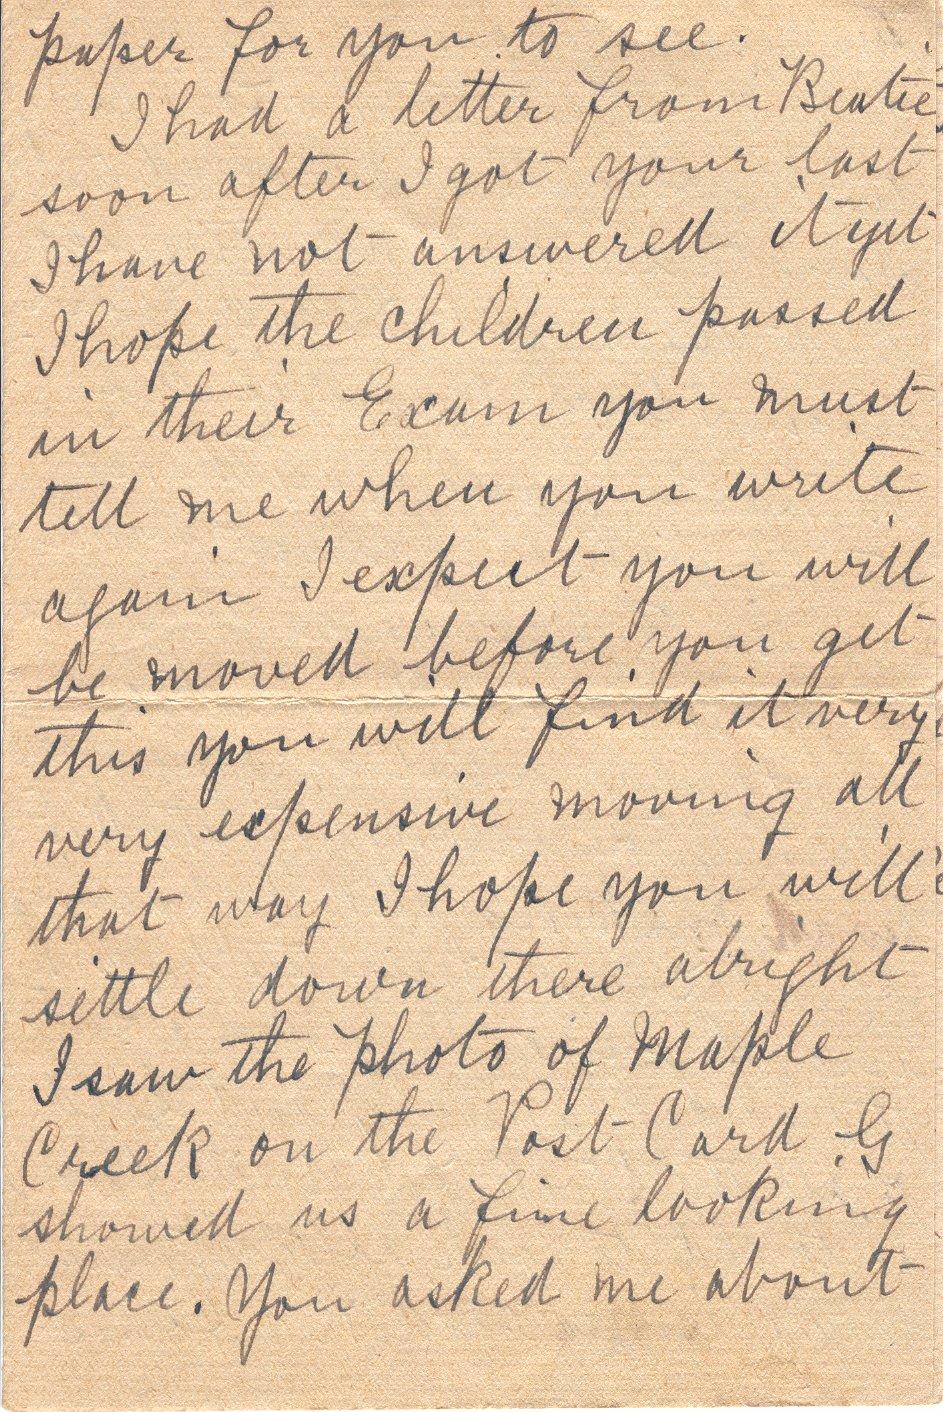 paper for you to see.
I had a letter from Beatie
soon after I got your last
I have not answered it yet
I hope the children passed
in their Exam you must
tell me when you write
again I expect you will
be moved before you get
this you will find it very
very expensive moving all
that way I hope you will
settle down there alright
I saw the photo of Maple
Creek on the Post Card G
showed us a fine looking
place. You asked me about